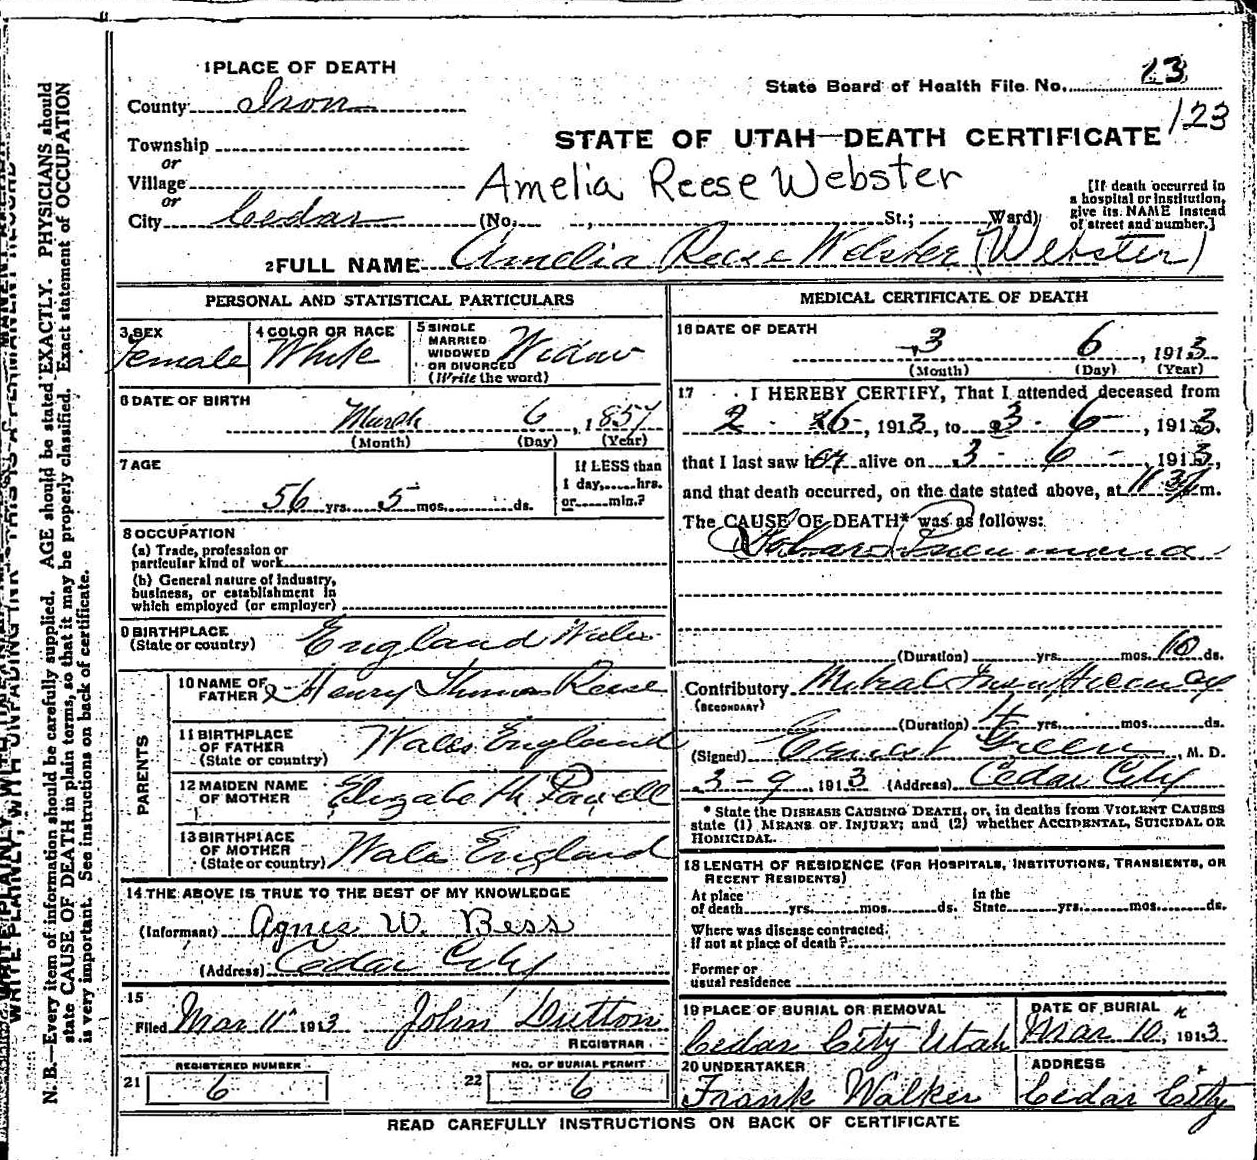 1 PLACE OF DEATH
State Board of Health File No. 13
County Iron
123
STATE OF UTAH—DEATH CERTIFICATE
Township
or
Village
or
Amelia Reese Webster
[If death occurred in a hospital or institution, give its NAME instead of street and number.]
City Cedar (No. , St.; Ward)
2 FULL NAME Amelia Reese Webster (Webster)
PERSONAL AND STATISTICAL PARTICULARS
3 SEX Female
4 COLOR OR RACE White
5 SINGLE MARRIED WIDOWED OR DIVORCED (Write the word) Widow
6 DATE OF BIRTH
March 6, 1857
(Month) (Day) (Year)
7 AGE
56 yrs. 5 mos. ds.
If LESS than 1 day, hrs. or min.?
8 OCCUPATION
(a) Trade, profession or particular kind of work
(b) General nature of industry, business, or establishment in which employed (or employer)
9 BIRTHPLACE (State or country) England Wales
PARENTS
10 NAME OF FATHER Henry Thomas Reese
11 BIRTHPLACE OF FATHER (State or country) Wales England
12 MAIDEN NAME OF MOTHER Elizabeth Powell
13 BIRTHPLACE OF MOTHER (State or country) Wales England
14 THE ABOVE IS TRUE TO THE BEST OF MY KNOWLEDGE
(Informant) Agnes W. Bess
(Address) Cedar City
15
Filed Mar 11 1913 John Dutton
REGISTRAR
REGISTERED NUMBER
21 6
NO. OF BURIAL PERMIT
22 6
MEDICAL CERTIFICATE OF DEATH
16 DATE OF DEATH
3 6, 1913
(Month) (Day) (Year)
17 I HEREBY CERTIFY, That I attended deceased from
2 26, 1913, to 3 - 6, 1913,
that I last saw her alive on 3 - 6 -, 1913,
and that death occurred, on the date stated above, at m.
The CAUSE OF DEATH* was as follows:
Lobar Pneumonia
(Duration) yrs. mos. 10 ds.
Contributory Mitral
(SECONDARY)
(Duration) yrs. mos. ds.
(Signed) Green, M. D.
3-9 1913 (Address) Cedar City
* State the DISEASE CAUSING DEATH, or, in deaths from VIOLENT CAUSES state (1) MEANS OF INJURY; and (2) whether ACCIDENTAL, SUICIDAL OR HOMICIDAL.
18 LENGTH OF RESIDENCE (FOR HOSPITALS, INSTITUTIONS, TRANSIENTS, OR RECENT RESIDENTS)
At place of death yrs. mos. ds. In the State yrs. mos. ds.
Where was disease contracted,
if not at place of death?
Former or
usual residence
19 PLACE OF BURIAL OR REMOVAL
Cedar City Utah
DATE OF BURIAL
Mar 10, 1913
20 UNDERTAKER
Frank Walker
ADDRESS
Cedar City
READ CAREFULLY INSTRUCTIONS ON BACK OF CERTIFICATE
N. B.—Every item of information should be carefully supplied. AGE should be stated EXACTLY. PHYSICIANS should
state CAUSE OF DEATH in plain terms, so that it may be properly classified. Exact statement of OCCUPATION
is very important. See instructions on back of certificate.